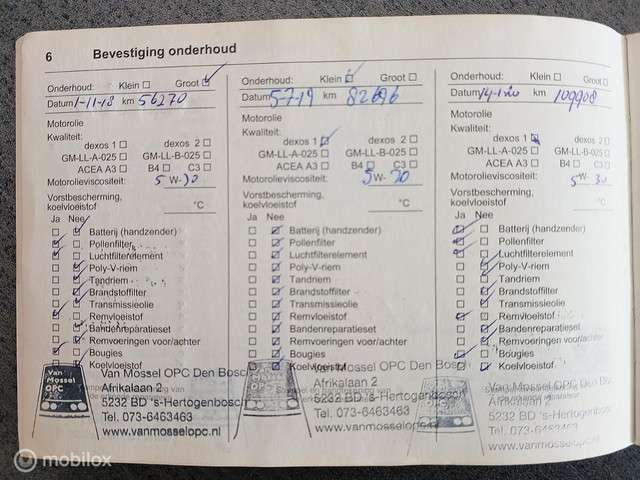 6 Bevestiging onderhoud
Onderhoud: Klein Groot
Datum 1-11-18 km 56270
Motorolie
Kwaliteit:
dexos 1 dexos 2
GM-LL-A-025 GM-LL-B-025
ACEA A3 B4 C3
Motorolieviscositeit: 5 W- 30
Vorstbescherming, koelvloeistof °C
Ja Nee
Batterij (handzender)
Pollenfilter
Luchtfilterelement
Poly-V-riem
Tandriem
Brandstoffilter
Transmissieolie
Remvloeistof
Bandenreparatieset
Remvoeringen voor/achter
Bougies
Koelvloeistof
Van Mossel OPC
Van Mossel OPC Den Bosch
Afrikalaan 2
5232 BD 's-Hertogenbosch
Tel. 073-6463463
www.vanmosselopc.nl
Onderhoud: Klein Groot
Datum 5-7-19 km 82696
Motorolie
Kwaliteit:
dexos 1 dexos 2
GM-LL-A-025 GM-LL-B-025
ACEA A3 B4 C3
Motorolieviscositeit: 5 W- 30
Vorstbescherming, koelvloeistof °C
Ja Nee
Batterij (handzender)
Pollenfilter
Luchtfilterelement
Poly-V-riem
Tandriem
Brandstoffilter
Transmissieolie
Remvloeistof
Bandenreparatieset
Remvoeringen voor/achter
Bougies
Koelvloeistof
Van Mossel OPC Den Bosch
Afrikalaan 2
5232 BD 's-Hertogenbosch
Tel. 073-6463463
www.vanmosselopc.nl
Onderhoud: Klein Groot
Datum 14-1-20 km 109908
Motorolie
Kwaliteit:
dexos 1 dexos 2
GM-LL-A-025 GM-LL-B-025
ACEA A3 B4 C3
Motorolieviscositeit: 5 W- 30
Vorstbescherming, koelvloeistof °C
Ja Nee
Batterij (handzender)
Pollenfilter
Luchtfilterelement
Poly-V-riem
Tandriem
Brandstoffilter
Transmissieolie
Remvloeistof
Bandenreparatieset
Remvoeringen voor/achter
Bougies
Koelvloeistof
Van Mossel OPC Den
Afrikalaan 2
5232 BD 's-Hertogenbos
Tel. 073-6463463
www.vanmosselopc.n
mobilox